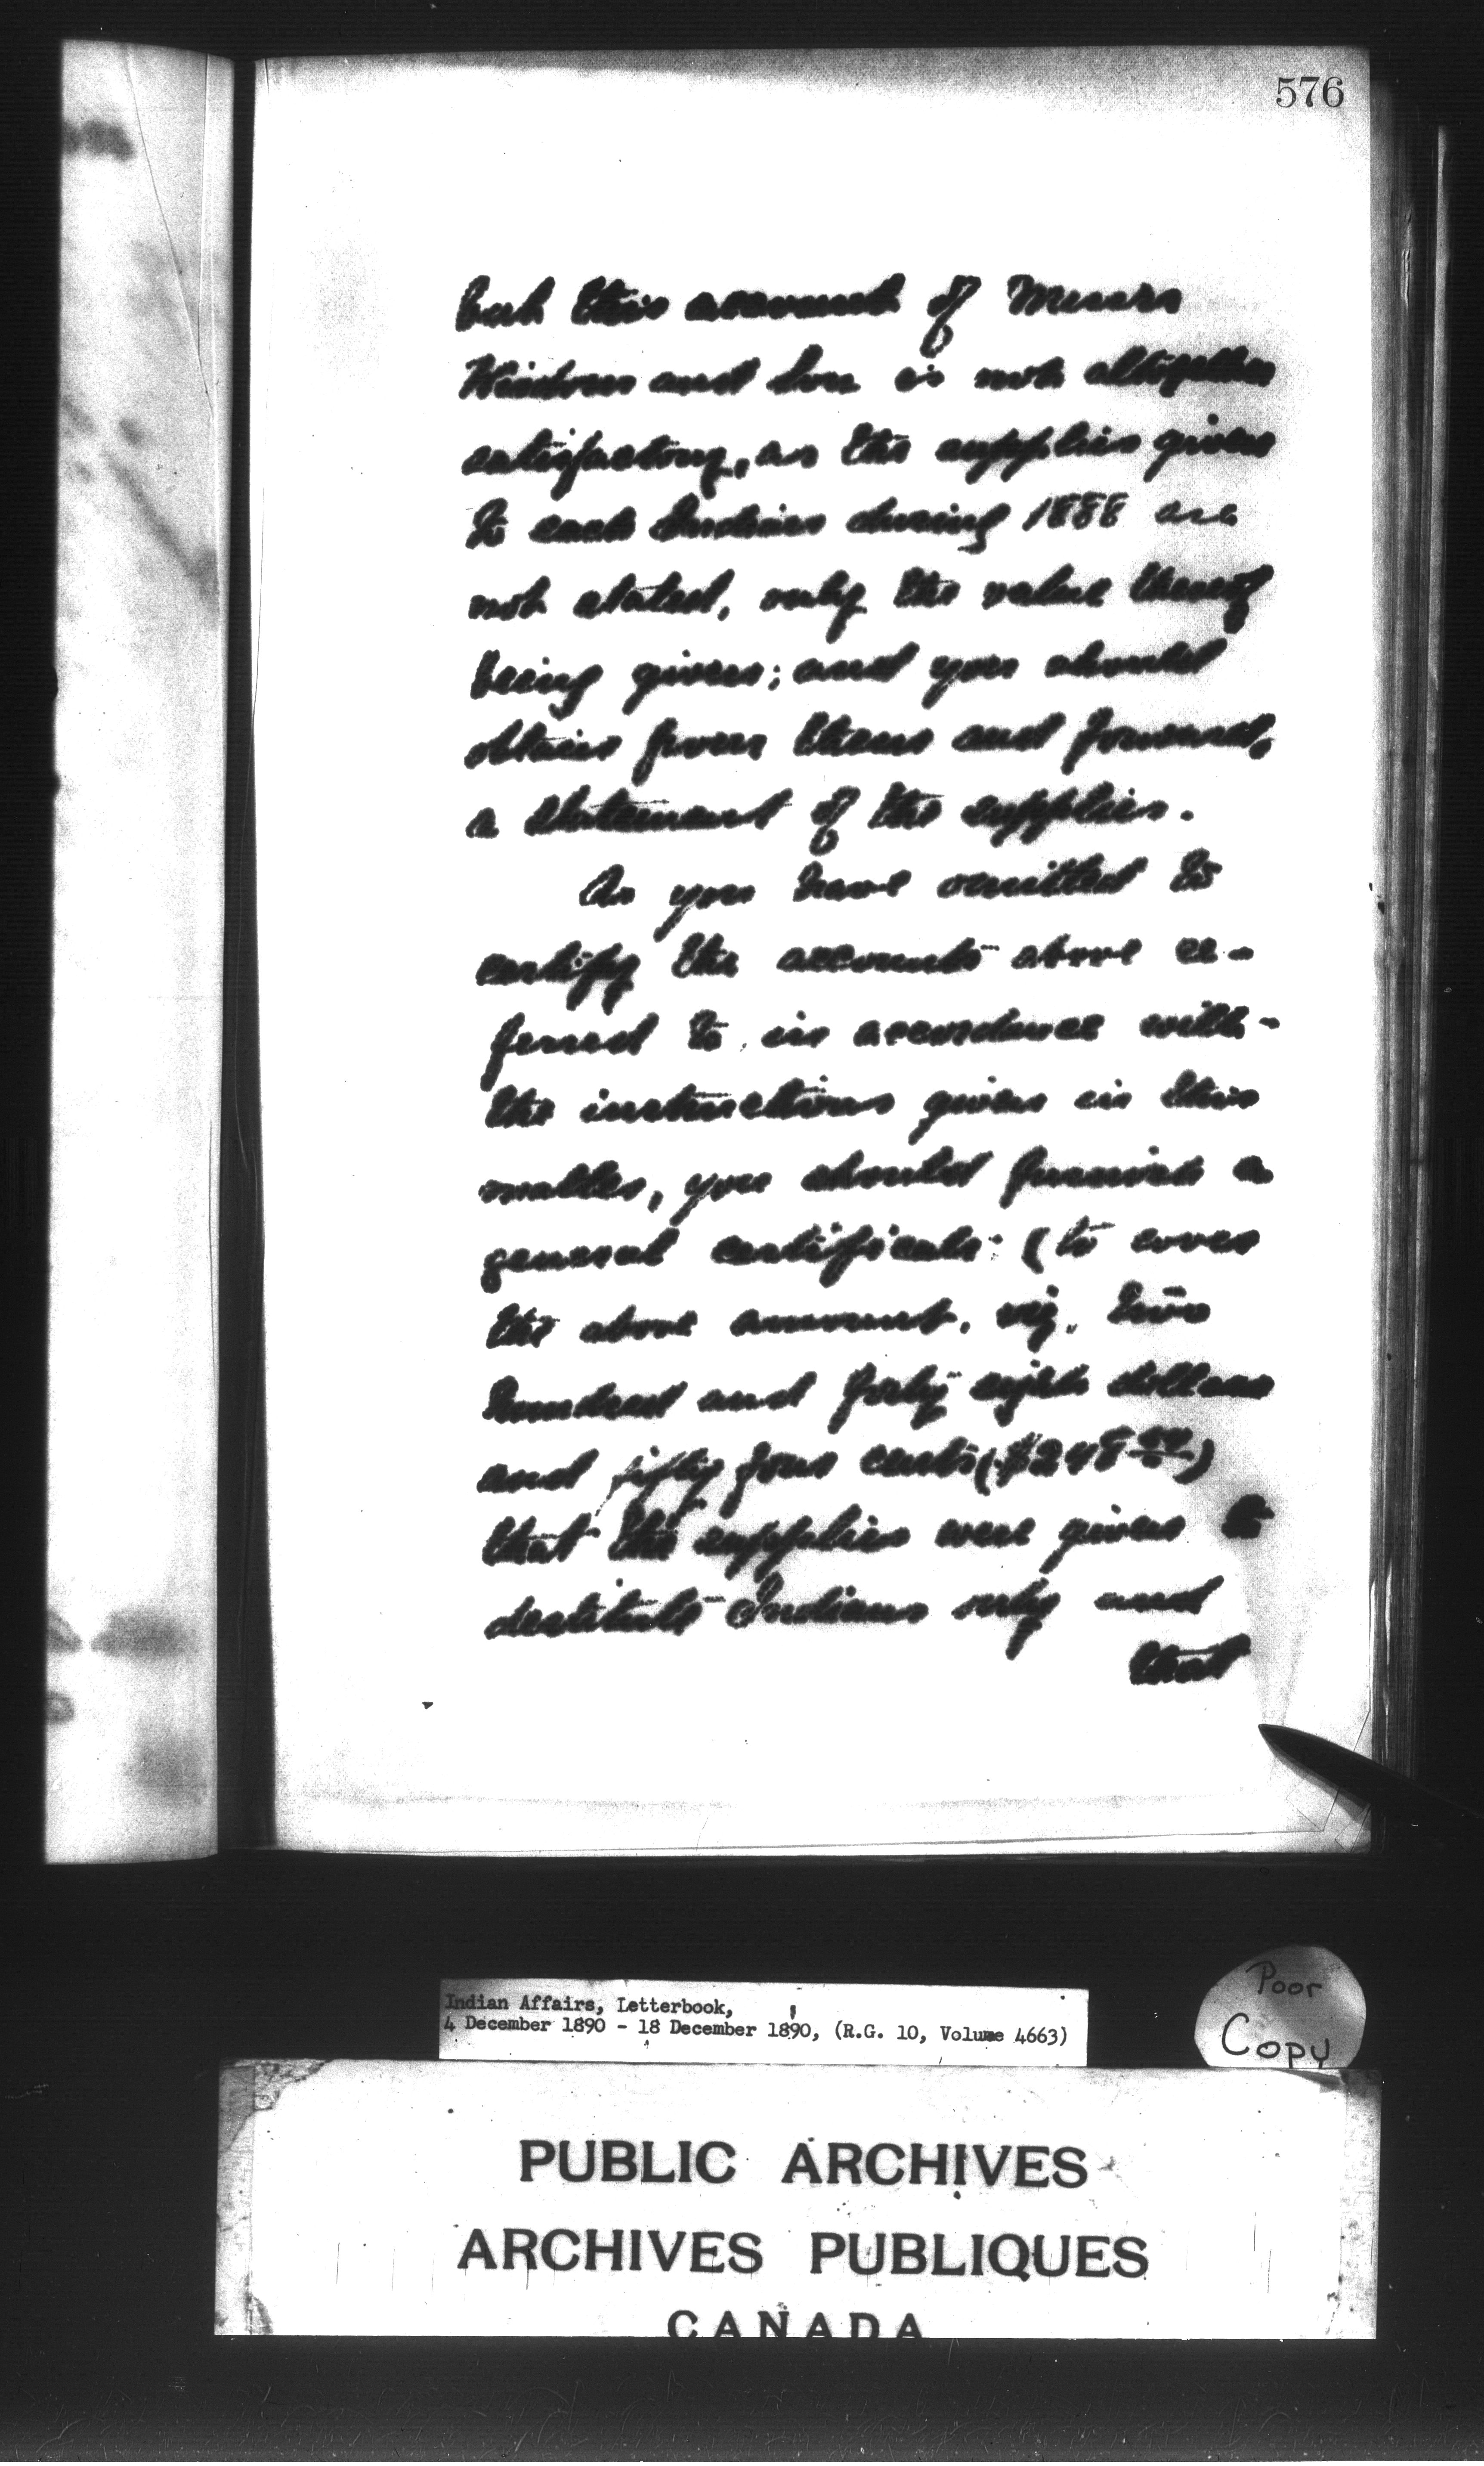 576
but this account of Messrs
and Son is not altogether
satisfactory, as the supplies given
to each Indian during 1888 are
not stated, only the value thereof
being given; and you should
obtain from them and forward,
a Statement of the supplies.
As you have omitted to
certify the accounts above re-
ferred to in accordance with
the instructions given in this
matter, you should furnish a
general certificate (to cover
the above amount, viz. Two
hundred and forty eight dollars
and fifty four cents ($248 54)
that the supplies were given to
destitute Indians only and
that
Indian Affairs, Letterbook,
4 December 1890 - 18 December 1890, (R.G. 10, Volume 4663)
Poor
Copy
PUBLIC ARCHIVES
ARCHIVES PUBLIQUES
CANADA